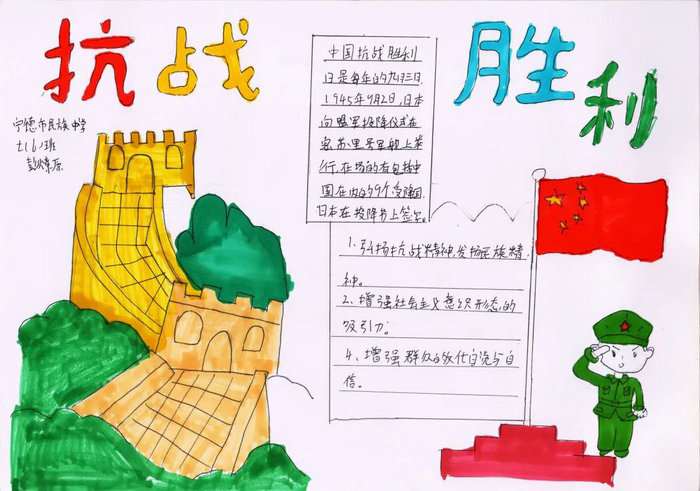 抗战
胜利
宁德市民族中学
七(6)班
中国抗战胜利
日是每年的九月三日,
1945年9月2日,日本
向盟军投降仪式在
密苏里号军舰上举
行,在场的有包括中
国在内的9个受降国,
日本在投降书上签字。
1、弘扬抗战精神,发扬民族精
神。
2、增强社会主义意识形态的
吸引力。
4、增强群众的
信。